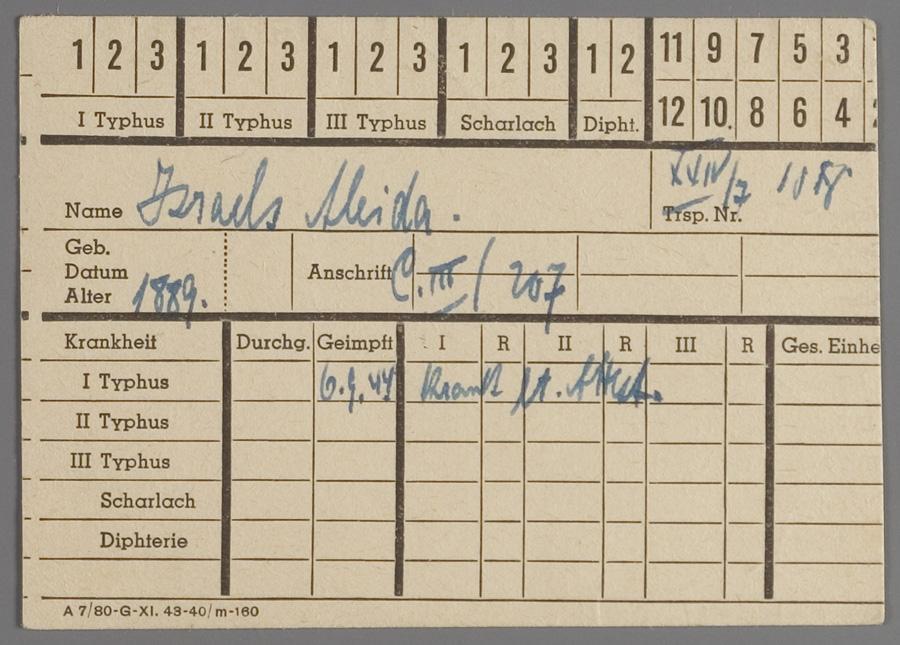 1 2 3 1 2 3 1 2 3 1 2 3 1 2 11 9 7 5 3
I Typhus II Typhus III Typhus Scharlach Dipht. 12 10. 8 6 4
Name Israels Aleida. XXIV/7 Trsp. Nr.
Geb. Datum Alter 1889. Anschrift C.III/207
Krankheit Durchg. Geimpft I R II R III R Ges. Einhe
I Typhus 6.9.44 Krank lt. Attest.
II Typhus
III Typhus
Scharlach
Diphterie
A 7/80-G-XI. 43-40/m-160